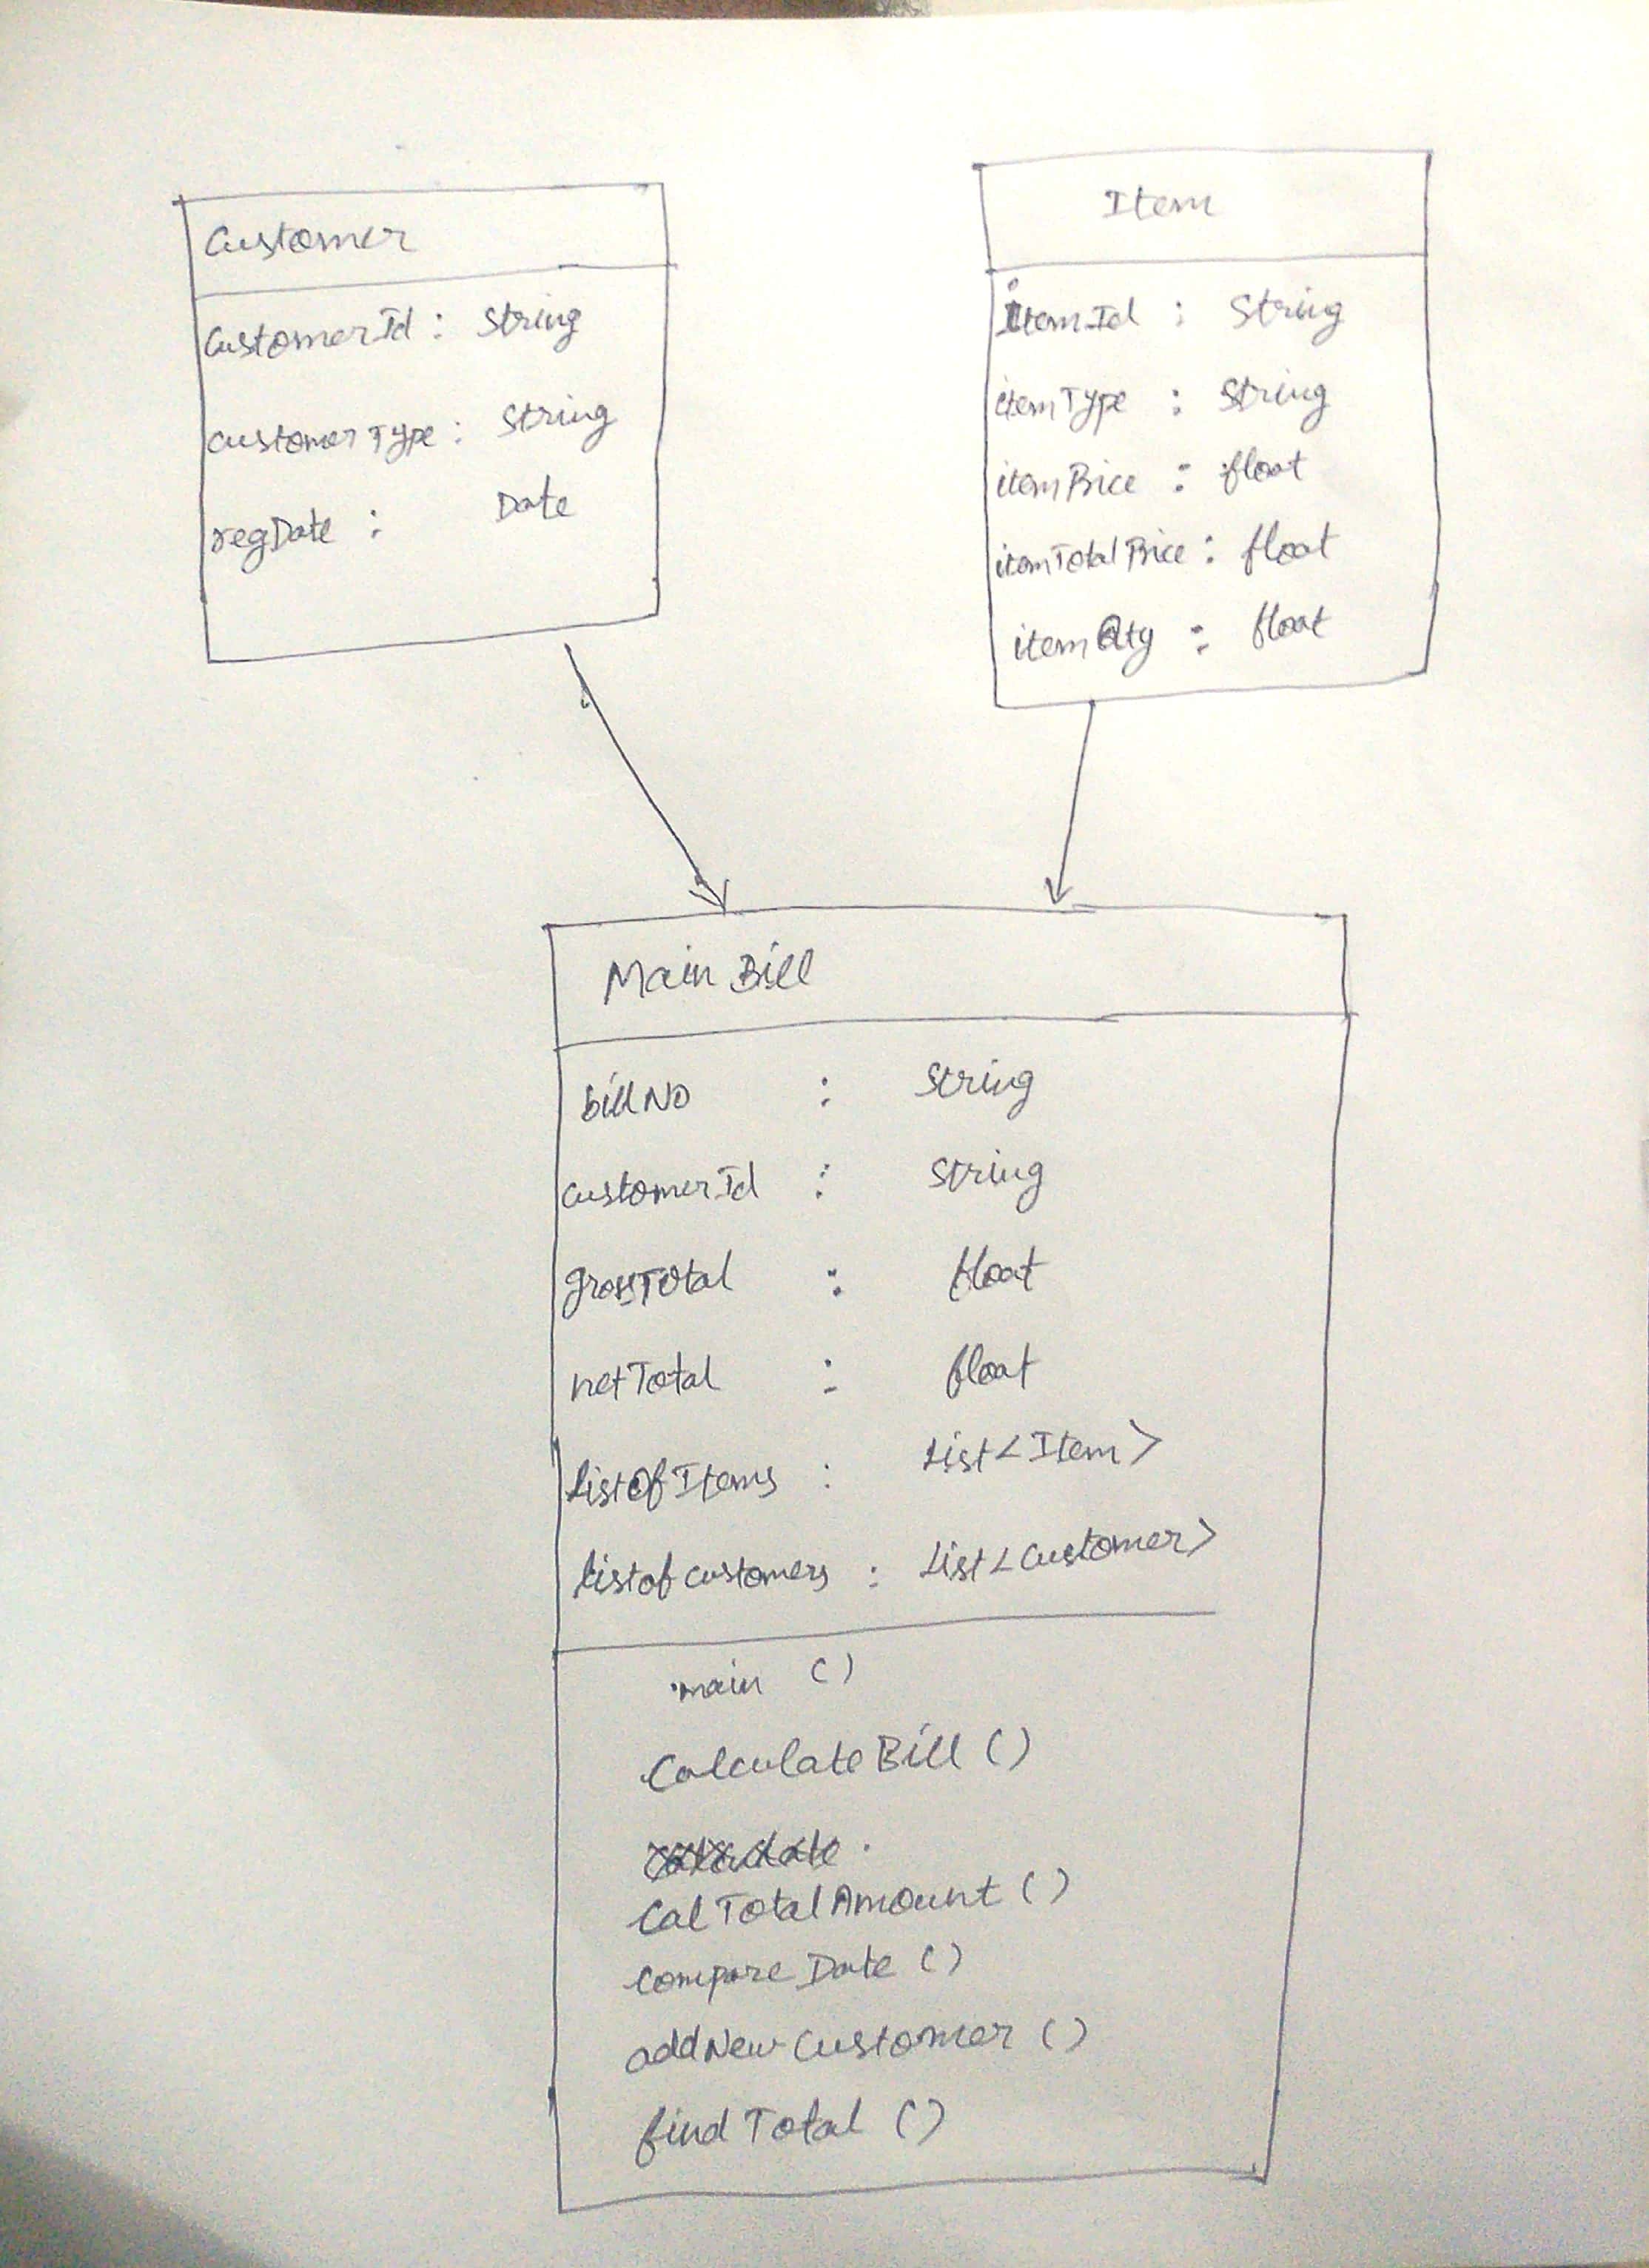 Customer
CustomerId : String
customerType : String
regDate : Date
Item
itemId : String
itemType : String
itemPrice : float
itemTotalPrice : float
itemQty : float
Main Bill
billNo : String
customerId : String
grossTotal : float
netTotal : float
listOfItems : List<Item>
listofcustomers : List<Customer>
main ()
CalculateBill ()
Calculate
CalTotalAmount ()
compareDate ()
addNewCustomer ()
findTotal ()